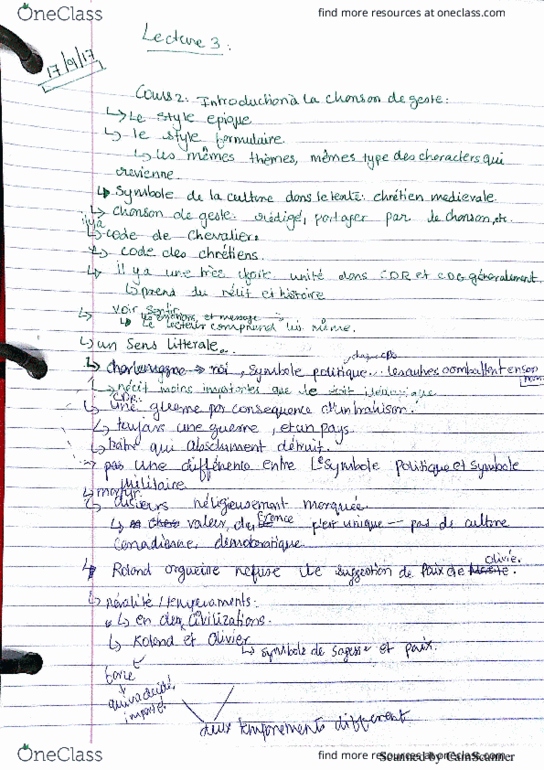 OneClass
find more resources at oneclass.com
Lecture 3:
17/9/17
Cours 2: Introduction à la chonson de geste:
↳ Le style epique
↳ le style formulaire
↳ les mêmes thèmes, mêmes type des characters qui
revienne
↳ Symbole de la culture dans le texte: chrétien medievale
↳ Chonson de geste: rédigé, partager par le chonson, etc.
il ya
↳ code de Chevaliers
↳ code des chrétiens.
↳ il ya une très unité dans CDR et CDG généralement
↳ prend du récit et histoire
↳ voir sentir
les émotions, et message
↳ Le lecteur comprend lui même.
↳ un Sens litterale
↳ charlemagne → roi, symbole politique les autres combattent en son
nom
↳ récit moins que le récit
CDR:
↳ Une guerre par consequence d'un trahison.
↳ toujours une guerre, et un pays
↳ qui absolument détruit.
→ pas une différence entre le symbole politique et symbole
militaire
↳ martyr
↳ religieusement marquée
↳ valeur, de France c'est unique -- pas de culture
Canadienne, démocratique
↳ Roland orgueille refuse le suggestion de Paix de Olivie.
↳ rivalité / temperaments:
↳ en deux Civilizations.
↳ Roland et Olivier
↳ symbole de sagesse et paix.
force
deux temperements different
OneClass
find more resources at oneclass.com
Scanned by CamScanner